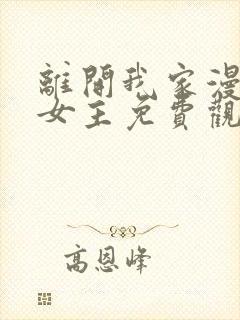 離開我家漫
女主免費觀
高恩峰